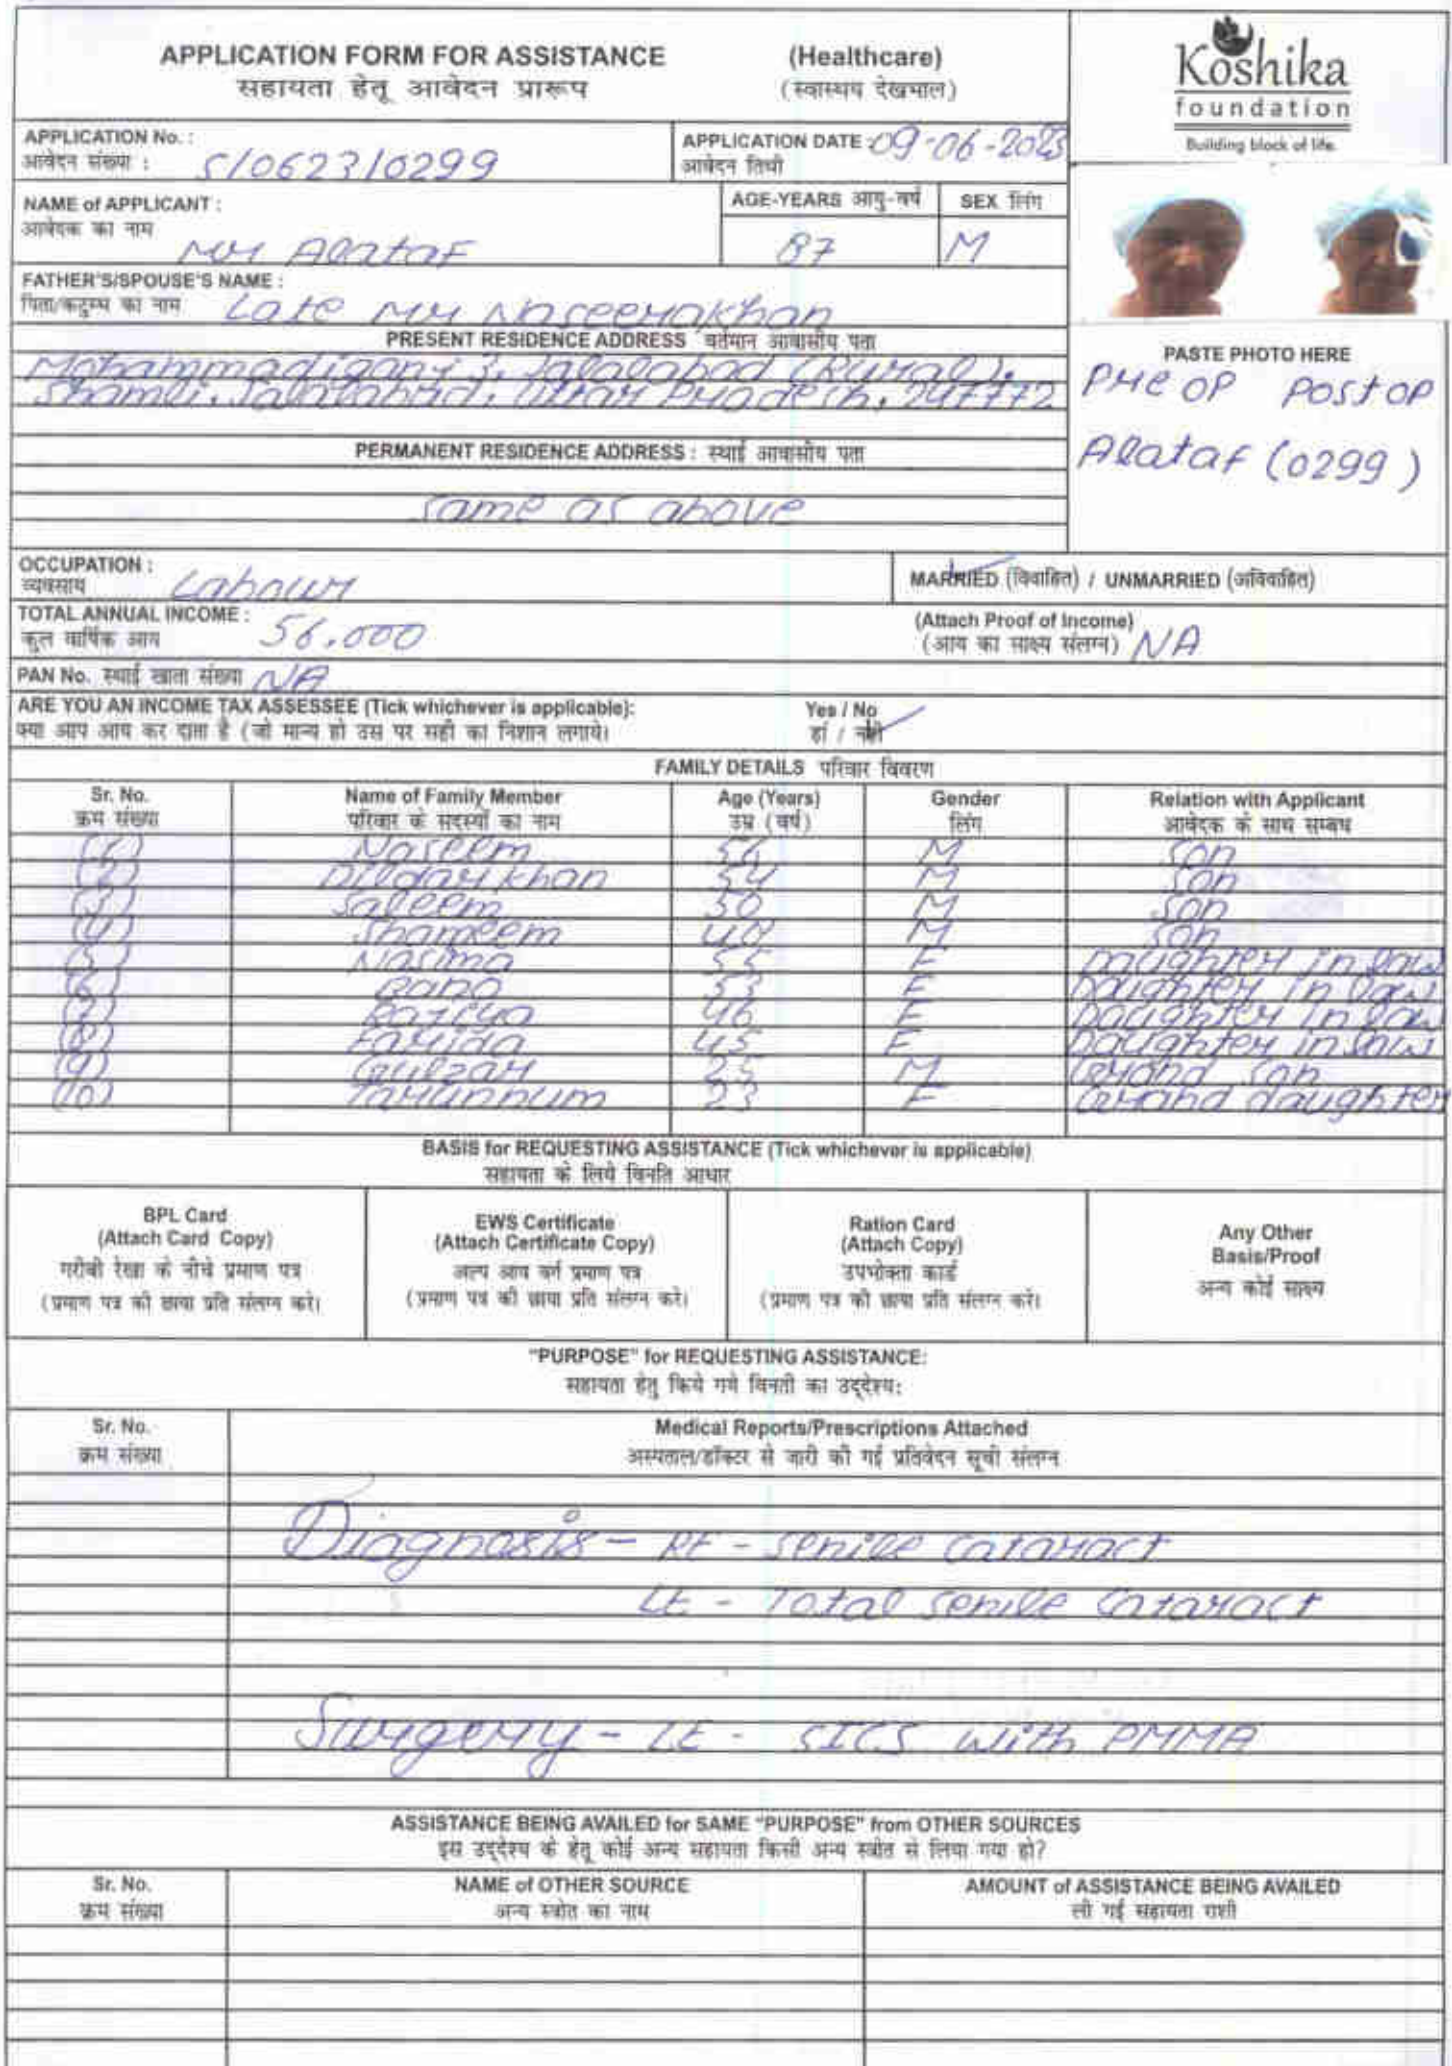 APPLICATION FORM FOR ASSISTANCE (Healthcare)
सहायता हेतू आवेदन प्रारूप (स्वास्थय देखभाल)
Koshika
foundation
Building block of life.
APPLICATION No. :
आवेदन संख्या : S/0623/0299
APPLICATION DATE : 09-06-2023
आवेदन तिथी
NAME of APPLICANT :
आवेदक का नाम
Mr Alataf
AGE-YEARS आयु-वर्ष
87
SEX लिंग
M
FATHER'S/SPOUSE'S NAME :
पिता/कटुम्ब का नाम Late Mr Naseerakhan
PRESENT RESIDENCE ADDRESS वर्तमान आवासीय पता
Mohammadiganj 3, Jalalabad (Rural),
Shamli, Jalalabad, Uttar Pradesh, 247772
PASTE PHOTO HERE
Pre OP Post OP
Alataf (0299)
PERMANENT RESIDENCE ADDRESS : स्थाई आवासीय पता
Same as above
OCCUPATION :
व्यवसाय Labour
MARRIED (विवाहित) / UNMARRIED (अविवाहित)
TOTAL ANNUAL INCOME :
कुल वार्षिक आय 56,000
(Attach Proof of Income)
(आय का साक्ष्य संलग्न) NA
PAN No. स्थाई खाता संख्या NA
ARE YOU AN INCOME TAX ASSESSEE (Tick whichever is applicable): Yes / No
क्या आप आय कर दाता है (जो मान्य हो उस पर सही का निशान लगाये। हां / नही
FAMILY DETAILS परिवार विवरण
Sr. No. Name of Family Member Age (Years) Gender Relation with Applicant
क्रम संख्या परिवार के सदस्यों का नाम उम्र (वर्ष) लिंग आवेदक के साथ सम्बध
(1) Naseem 56 M Son
(2) Dildar Khan 54 M Son
(3) Saleem 50 M Son
(4) Shameem 48 M Son
(5) Nasima 55 F Daughter in law
(6) Bano 53 F Daughter in law
(7) 46 F Daughter in law
(8) Farida 45 F Daughter in law
(9) Gulzar 25 M Grand Son
(10) Tarunnum 23 F Grand daughter
BASIS for REQUESTING ASSISTANCE (Tick whichever is applicable)
सहायता के लिये विनति आधार
BPL Card
(Attach Card Copy)
गरीबी रेखा के नीचे प्रमाण पत्र
(प्रमाण पत्र की छाया प्रति संलग्न करे।
EWS Certificate
(Attach Certificate Copy)
अल्प आय वर्ग प्रमाण पत्र
(प्रमाण पत्र की छाया प्रति संलग्न करे।
Ration Card
(Attach Copy)
उपभोक्ता कार्ड
(प्रमाण पत्र की छाया प्रति संलग्न करे।
Any Other
Basis/Proof
अन्य कोई साक्ष्य
"PURPOSE" for REQUESTING ASSISTANCE:
सहायता हेतु किये गये विनती का उद्देश्य:
Sr. No. Medical Reports/Prescriptions Attached
क्रम संख्या अस्पताल/डॉक्टर से जारी की गई प्रतिवेदन सूची संलग्न
Diagnosis - RE - Senile Cataract
LE - Total Senile Cataract
Surgery - LE - SICS with PMMA
ASSISTANCE BEING AVAILED for SAME "PURPOSE" from OTHER SOURCES
इस उद्देश्य के हेतू कोई अन्य सहायता किसी अन्य स्त्रोत से लिया गया हो?
Sr. No. NAME of OTHER SOURCE AMOUNT of ASSISTANCE BEING AVAILED
क्रम संख्या अन्य स्त्रोत का नाम ली गई सहायता राशी